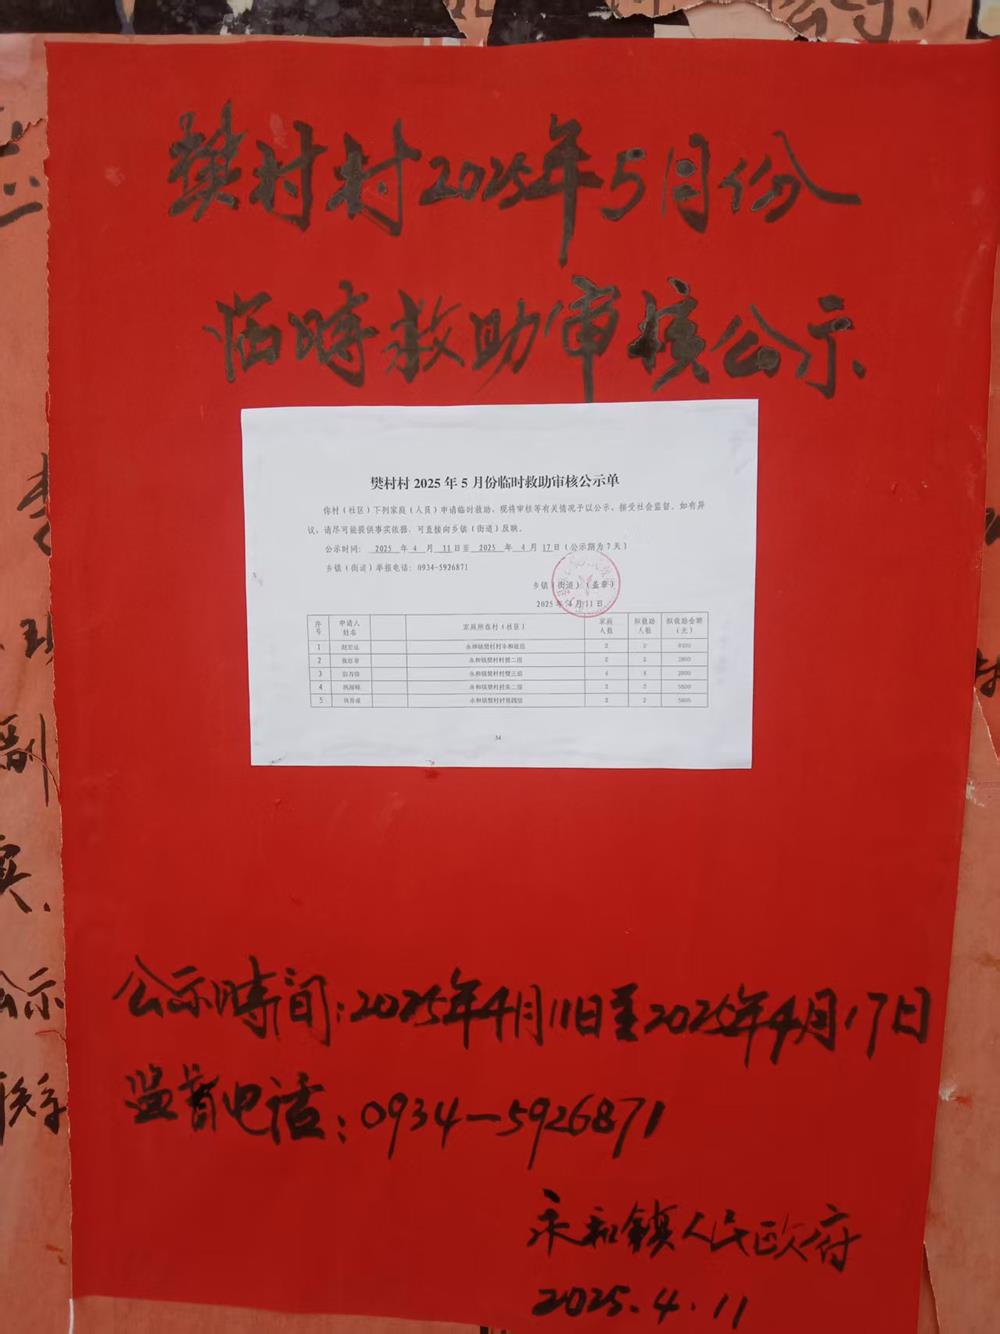 樊村村2025年5月份
临時救助审核公示
樊村村 2025 年 5 月份临时救助审核公示单
你村（社区）下列家庭（人员）申请临时救助，现将审核等有关情况予以公示，接受社会监督。如有异
议，请尽可能提供事实依据，可直接向乡镇（街道）反映。
公示时间： 2025 年 4 月 11 日至 2025 年 4 月 17 日（公示期为 7 天）
乡镇（街道）举报电话：0934-5926871
乡镇（街道）（盖章）
2025 年 4 月 11 日
序号 申请人姓名 家庭所在村（社区） 家庭人数 拟救助人数 拟救助金额（元）
1 永和镇樊村村
2 永和镇樊村村樊二组 2 2
3 永和镇樊村村樊三组 4 4
4 永和镇樊村村
5 永和镇樊村村 2
34
公示時间：2025年4月11日至2025年4月17日
监督电话：0934-5926871
永和镇人民政府
2025.4.11